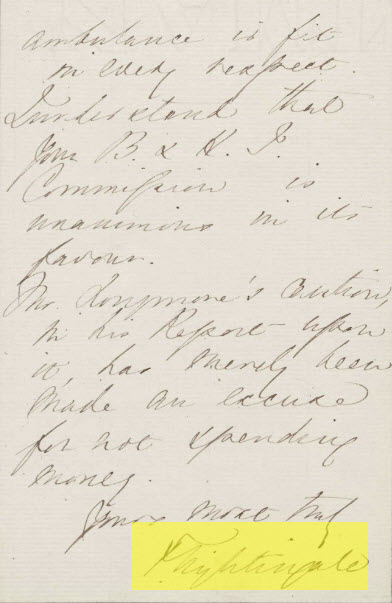 ambulance is fit
in every respect.
I understand that
your B. & H. I.
Commission is
unanimous in its
favour.
Mr. Longmore's caution,
in his Report upon
it, has merely been
made an excuse
for not spending
money.
Yours most truly
F Nightingale